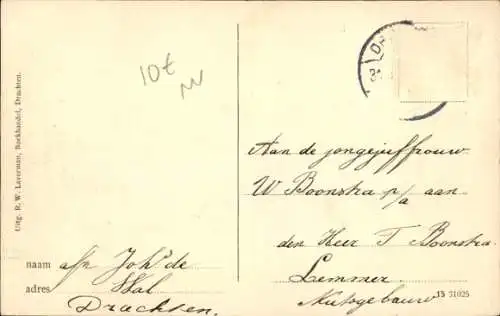 10€
Uitg. R. W. Laverman, Boekhandel, Drachten.
Aan de jongejuffrouw
W Boonstra p/a aan
den Heer T Boonstra
Lemmer.
Nutsgebouw
naam afz Joh's de
adres Wal
Drachten.
15 31025